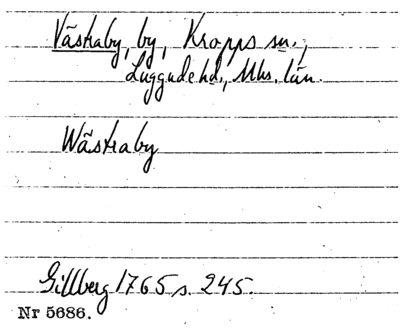 Västraby, by, Kropps sn.,
Luggude hd., Mhs. län.
Wästraby
Gillberg 1765 s. 245.
Nr 5686.